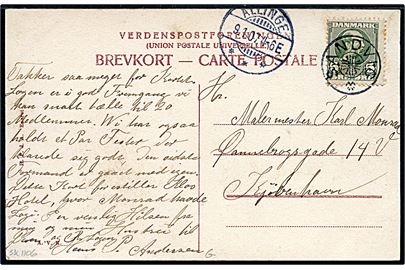 VERDENSPOSTFORENINGEN
(UNION POSTALE UNIVERSELLE)
BREVKORT — CARTE POSTALE
ALLINGE
DANMARK
SANDVIG
Takker saa meget for Kortet
Logen er i god Fremgang vi
kan snart tælle til 20
Medlemmer. Vi har ogsaa
holdt et Par Fester der
klarede sig godt. Den sidste
Formand er gaaet med igen.
Dette Kort forestiller
Hotel, hvor Monrad havde
Logi. En venlig Hilsen fra
mig og min Hustru til
Hans P. Andersen
Hr.
Malermester Karl Monrad
Dannebrogsgade 14 V
Kjøbenhavn